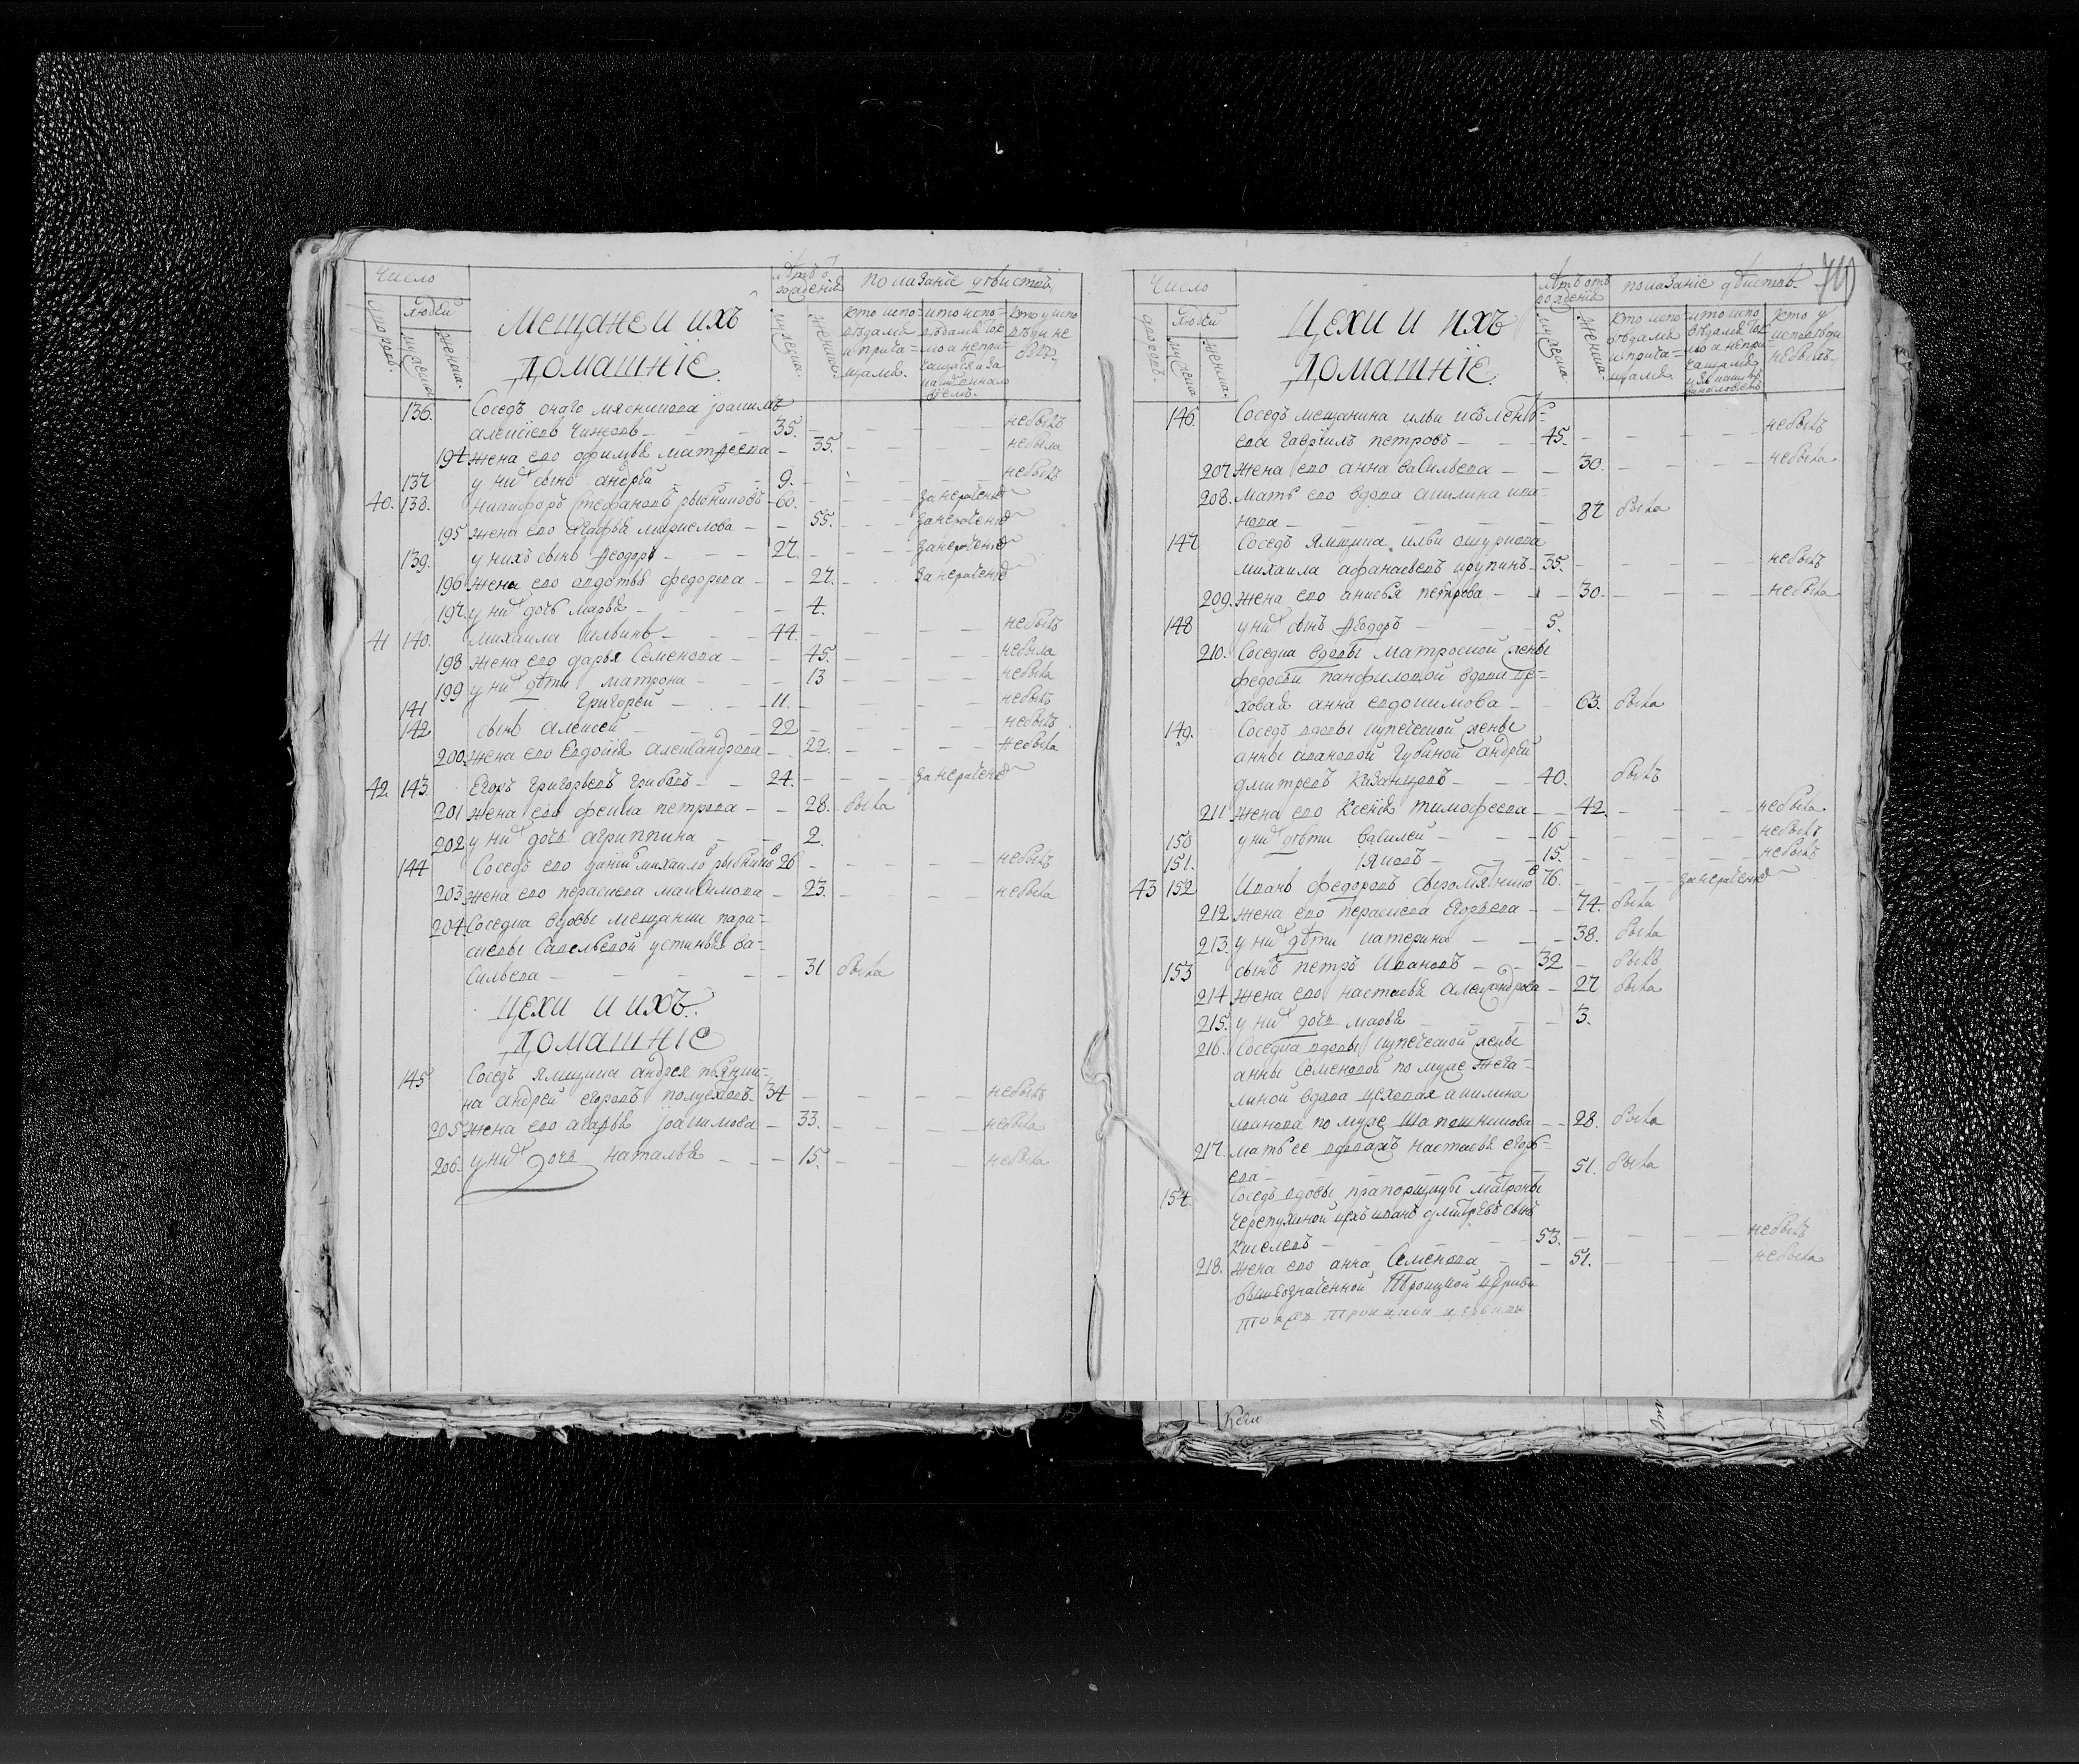 Число
людей
дворовъ.
мужеска
женска.
Мещане и ихъ
домашніе
лѣтъ отъ
рожденія
мужеска.
женска.
показаніе дѣйствъ
кто испо=
вѣдался
и прича=
щался.
кто испо=
вѣдалсяток
мо а непри=
кто у испо
вѣди не
былъ
136. Соседъ онаго мясникова іоакимъ
алексіевъ Чижовъ 35. небылъ
194 жена его ефимья матвеева 35. небыла
137 у них сынъ андрей 9. небылъ
40. 138. никифоръ стефановъ рыбниковъ 60. занерачение
195 жена его агафья маркелова 55. занерачение
139. у нихъ сынъ Феодоръ 27. занерачение
196 жена его авдотья федорова 27. занерачение
197 у них дочь марья 4.
41 140. михаила ильинъ 44. небылъ
198 жена его дарья Семенова 45. небыла
199 у них дѣти матрона 13 небыла
141 Григорей 11. небылъ
142 сынъ алексей 22 небылъ
200. жена его Евдокія александрова 22. небыла
42. 143. Егоръ Григорьевъ 24. занерачение
201 жена его фекла петрова 28. была
202 у них дочь агриппина 2.
144 Соседъ его михаило рыбников 26 небылъ
203 жена его параскева максимова 23. небыла
204. Соседка вдовы мещанки пара=
скевы Савельевой устинья ва=
сильева 31 была
Цехи и ихъ
домашніе
145 Соседъ ямщика андрея пьянки=
на андрей егоровъ полуехтовъ 34 небылъ
205 жена его агафья іоакимова 33. небыла
206. у них дочь наталья 15. небыла
Число
людей
дворовъ.
мужеска
женска.
Цехи и ихъ
домашніе.
лѣтъ отъ
рожденія
мужеска.
женска.
показаніе дѣйствъ.
кто испо=
вѣдался
и прича=
щался.
кто испо
вѣдался ток
мо а непри
чащался
кто у
исповѣди
небылъ.
146. Соседъ мещанина ильи
Гавріилъ петровъ 45. небылъ
207 жена его анна васильева 30. небыла
208. мать его вдова акилина ива=
нова 87 была
147 Соседъ ямщика ильи ошуркова
михаила афанасьевъ крупинъ 35. небылъ
209. жена его анисья петрова 30. небыла
148 у них сынъ Феодоръ 5.
210. Соседка вдовы матроской жены
федосьи панфиловой вдова це=
ховая анна евдокимова 63. была
149. Соседъ вдовы купеческой жены
анны ивановой Губиной андрей
дмитревъ Казанцовъ 40. былъ
211 жена его Ксенія тимофеева 42. небыла
150 у них дѣти василей 16 небылъ
151. Яковъ 15. небылъ
43 152 Иванъ федоровъ сыромятников 76. занерачение
212 жена его параскева Егорьева 74. была
213. у них дѣти катерина 38. была
153 сынъ петръ Ивановъ 32 былъ
214 жена его настасья александрова 27 была
215. у них дочь марья 3.
216. Соседка вдовы купеческой жены
анны Семеновой по муже Жега=
линой вдова цеховая акилина
иванова по муже Шапошникова 28. была
217. мать ее вдовая настасья егорь=
ева 51. была
154. Соседъ вдовы прапорщицы матроны
черепухиной цехъ иванъ дмитревъ сынъ
Киселевъ 53. небылъ
218. жена его анна Семенова 51. небыла
вышеозначенной Троицкой церкви